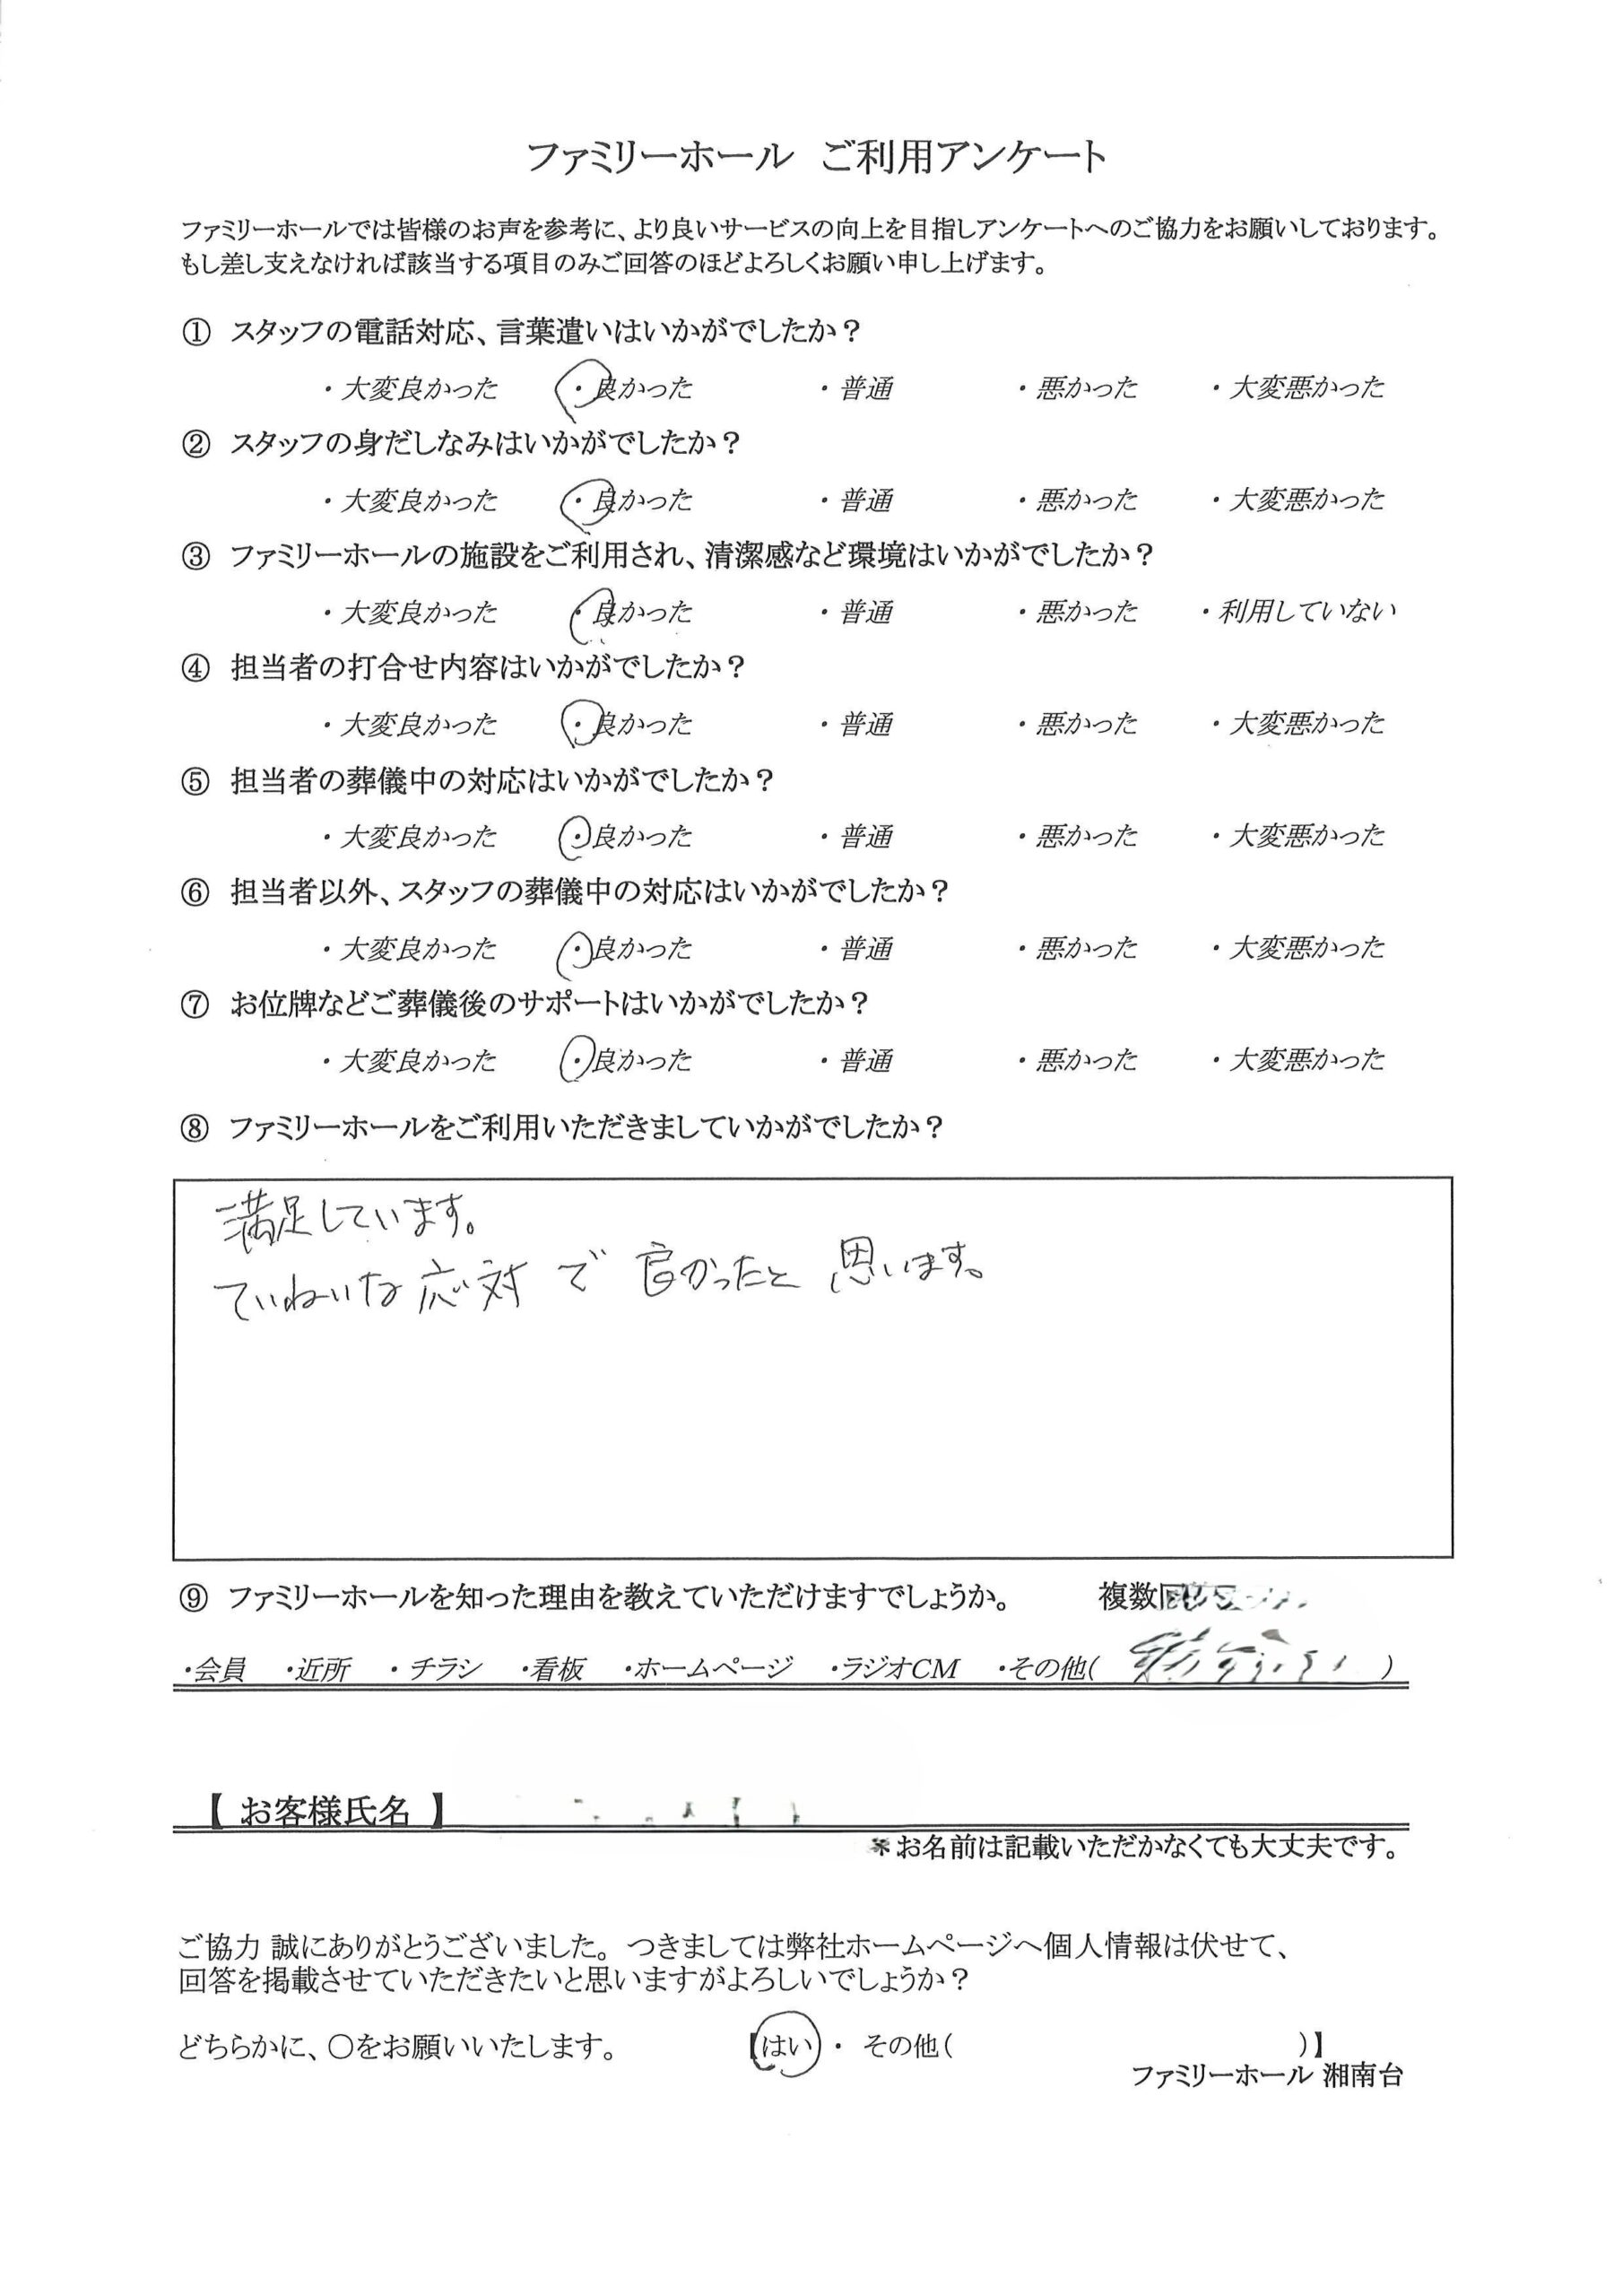 ファミリーホール ご利用アンケート
ファミリーホールでは皆様のお声を参考に、より良いサービスの向上を目指しアンケートへのご協力をお願いしております。
もし差し支えなければ該当する項目のみご回答のほどよろしくお願い申し上げます。
① スタッフの電話対応、言葉遣いはいかがでしたか？
・大変良かった ・良かった ・普通 ・悪かった ・大変悪かった
② スタッフの身だしなみはいかがでしたか？
・大変良かった ・良かった ・普通 ・悪かった ・大変悪かった
③ ファミリーホールの施設をご利用され、清潔感など環境はいかがでしたか？
・大変良かった ・良かった ・普通 ・悪かった ・利用していない
④ 担当者の打合せ内容はいかがでしたか？
・大変良かった ・良かった ・普通 ・悪かった ・大変悪かった
⑤ 担当者の葬儀中の対応はいかがでしたか？
・大変良かった ・良かった ・普通 ・悪かった ・大変悪かった
⑥ 担当者以外、スタッフの葬儀中の対応はいかがでしたか？
・大変良かった ・良かった ・普通 ・悪かった ・大変悪かった
⑦ お位牌などご葬儀後のサポートはいかがでしたか？
・大変良かった ・良かった ・普通 ・悪かった ・大変悪かった
⑧ ファミリーホールをご利用いただきましていかがでしたか？
満足しています。
ていねいな応対で良かったと思います。
⑨ ファミリーホールを知った理由を教えていただけますでしょうか。 複数
・会員 ・近所 ・チラシ ・看板 ・ホームページ ・ラジオCM ・その他( )
【 お客様氏名 】
※お名前は記載いただかなくても大丈夫です。
ご協力 誠にありがとうございました。つきましては弊社ホームページへ個人情報は伏せて、
回答を掲載させていただきたいと思いますがよろしいでしょうか？
どちらかに、〇をお願いいたします。 【はい ・ その他( )】
ファミリーホール 湘南台